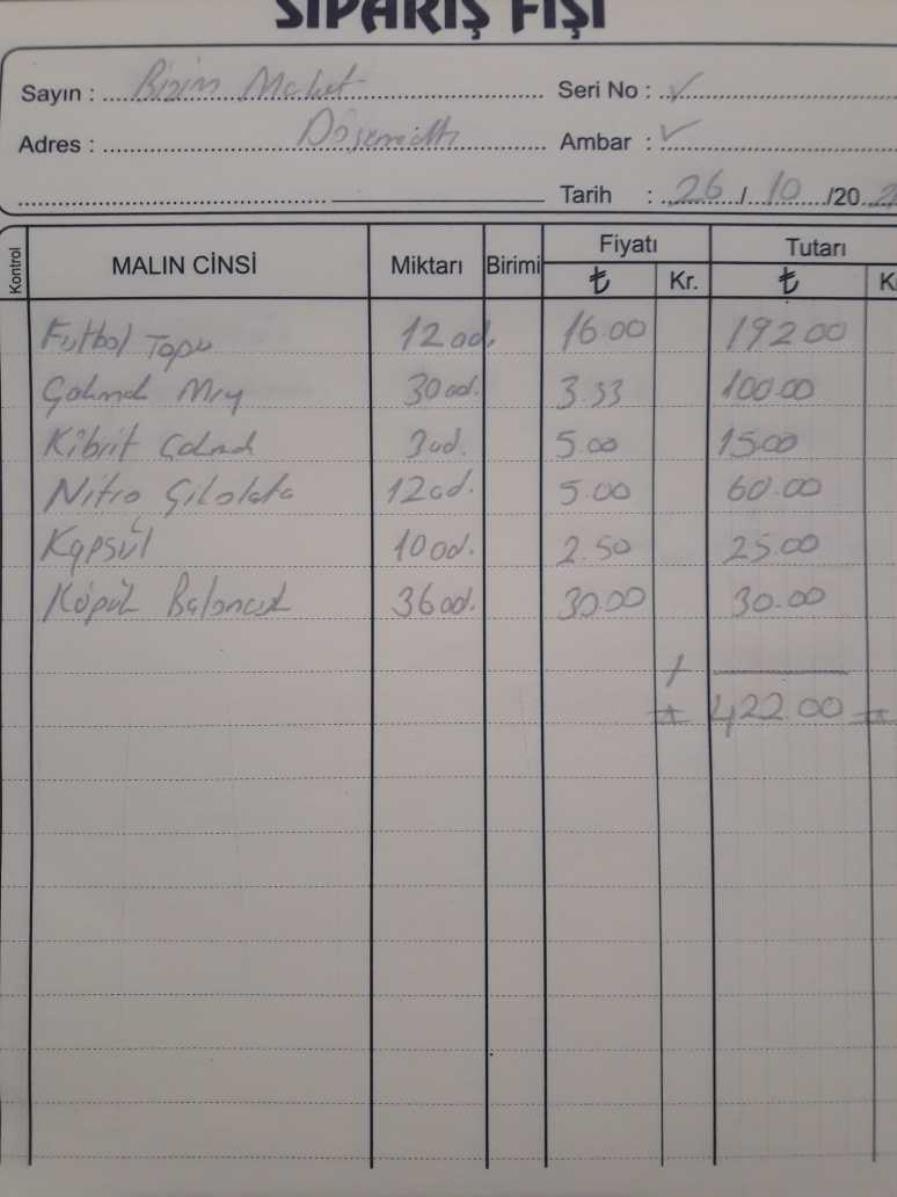 SİPARİŞ FİŞİ
Sayın : Bizim Market
Seri No : ✓
Adres : Döşemealtı
Ambar : ✓
Tarih : 26 / 10 /20
Kontrol MALIN CİNSİ Miktarı Birimi Fiyatı Tutarı
₺ Kr. ₺
Futbol Topu 12 ad. 16.00 192.00
30 ad. 3.33 100.00
Kibrit 3 ad. 5.00 15.00
Nitro Çikolata 12 ad. 5.00 60.00
Kapsül 10 ad. 2.50 25.00
Köpük Baloncuk 36 ad. 30.00 30.00
422.00